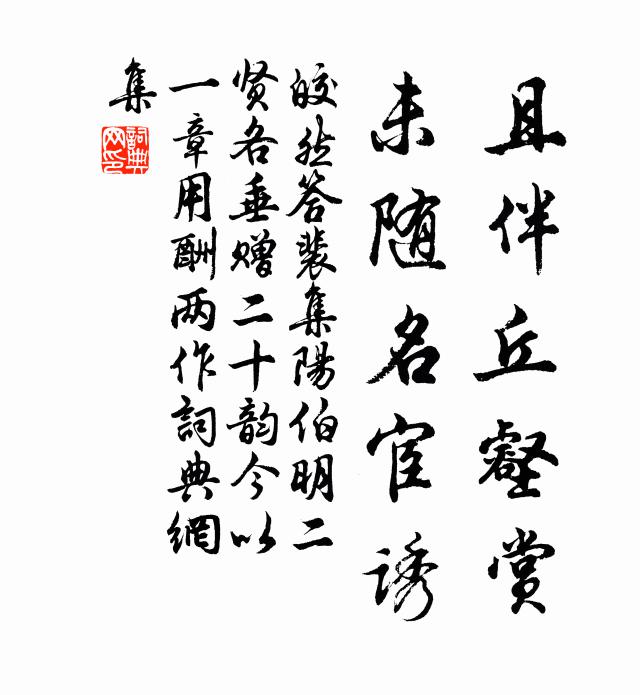 且伴丘壑賞
未随名宦诱
皎然答裴集陽伯明二
贤各垂赠二十韵今以
一章用酬两作詞典網
集
詞典網印